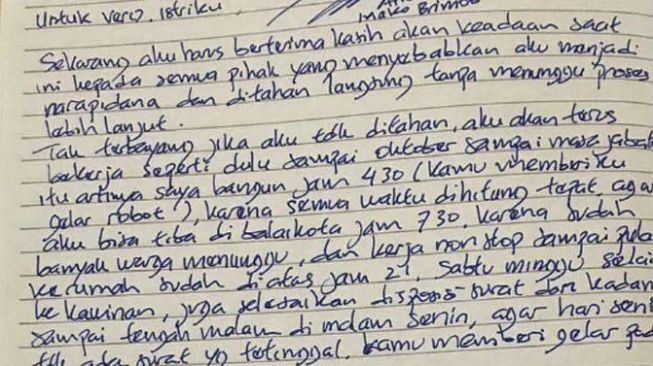 Untuk Vero, istriku
Mako Brimob
Sekarang aku harus berterima kasih akan keadaan saat
ini kepada semua pihak yang menyebabkan aku menjadi
narapidana dan ditahan langsung tanpa menunggu proses
lebih lanjut.
Tak terbayang jika aku tdk ditahan, aku akan terus
bekerja seperti dulu sampai oktober sampai masa jabat
itu artinya saya bangun jam 430 (kamu memberiku
gelar robot), karena semua waktu dihitung tepat, agar
aku bisa tiba di balaikota jam 730. Karena sudah
banyak warga menunggu, dan kerja non stop sampai pula
ke rumah sudah diatas jam 21. Sabtu minggu selai
ke kawinan, juga selesaikan disposisi surat dari kadan
sampai tengah malam di malam senin, agar hari seni
tdk ada surat yg tertinggal. Kamu memberi gelar pad